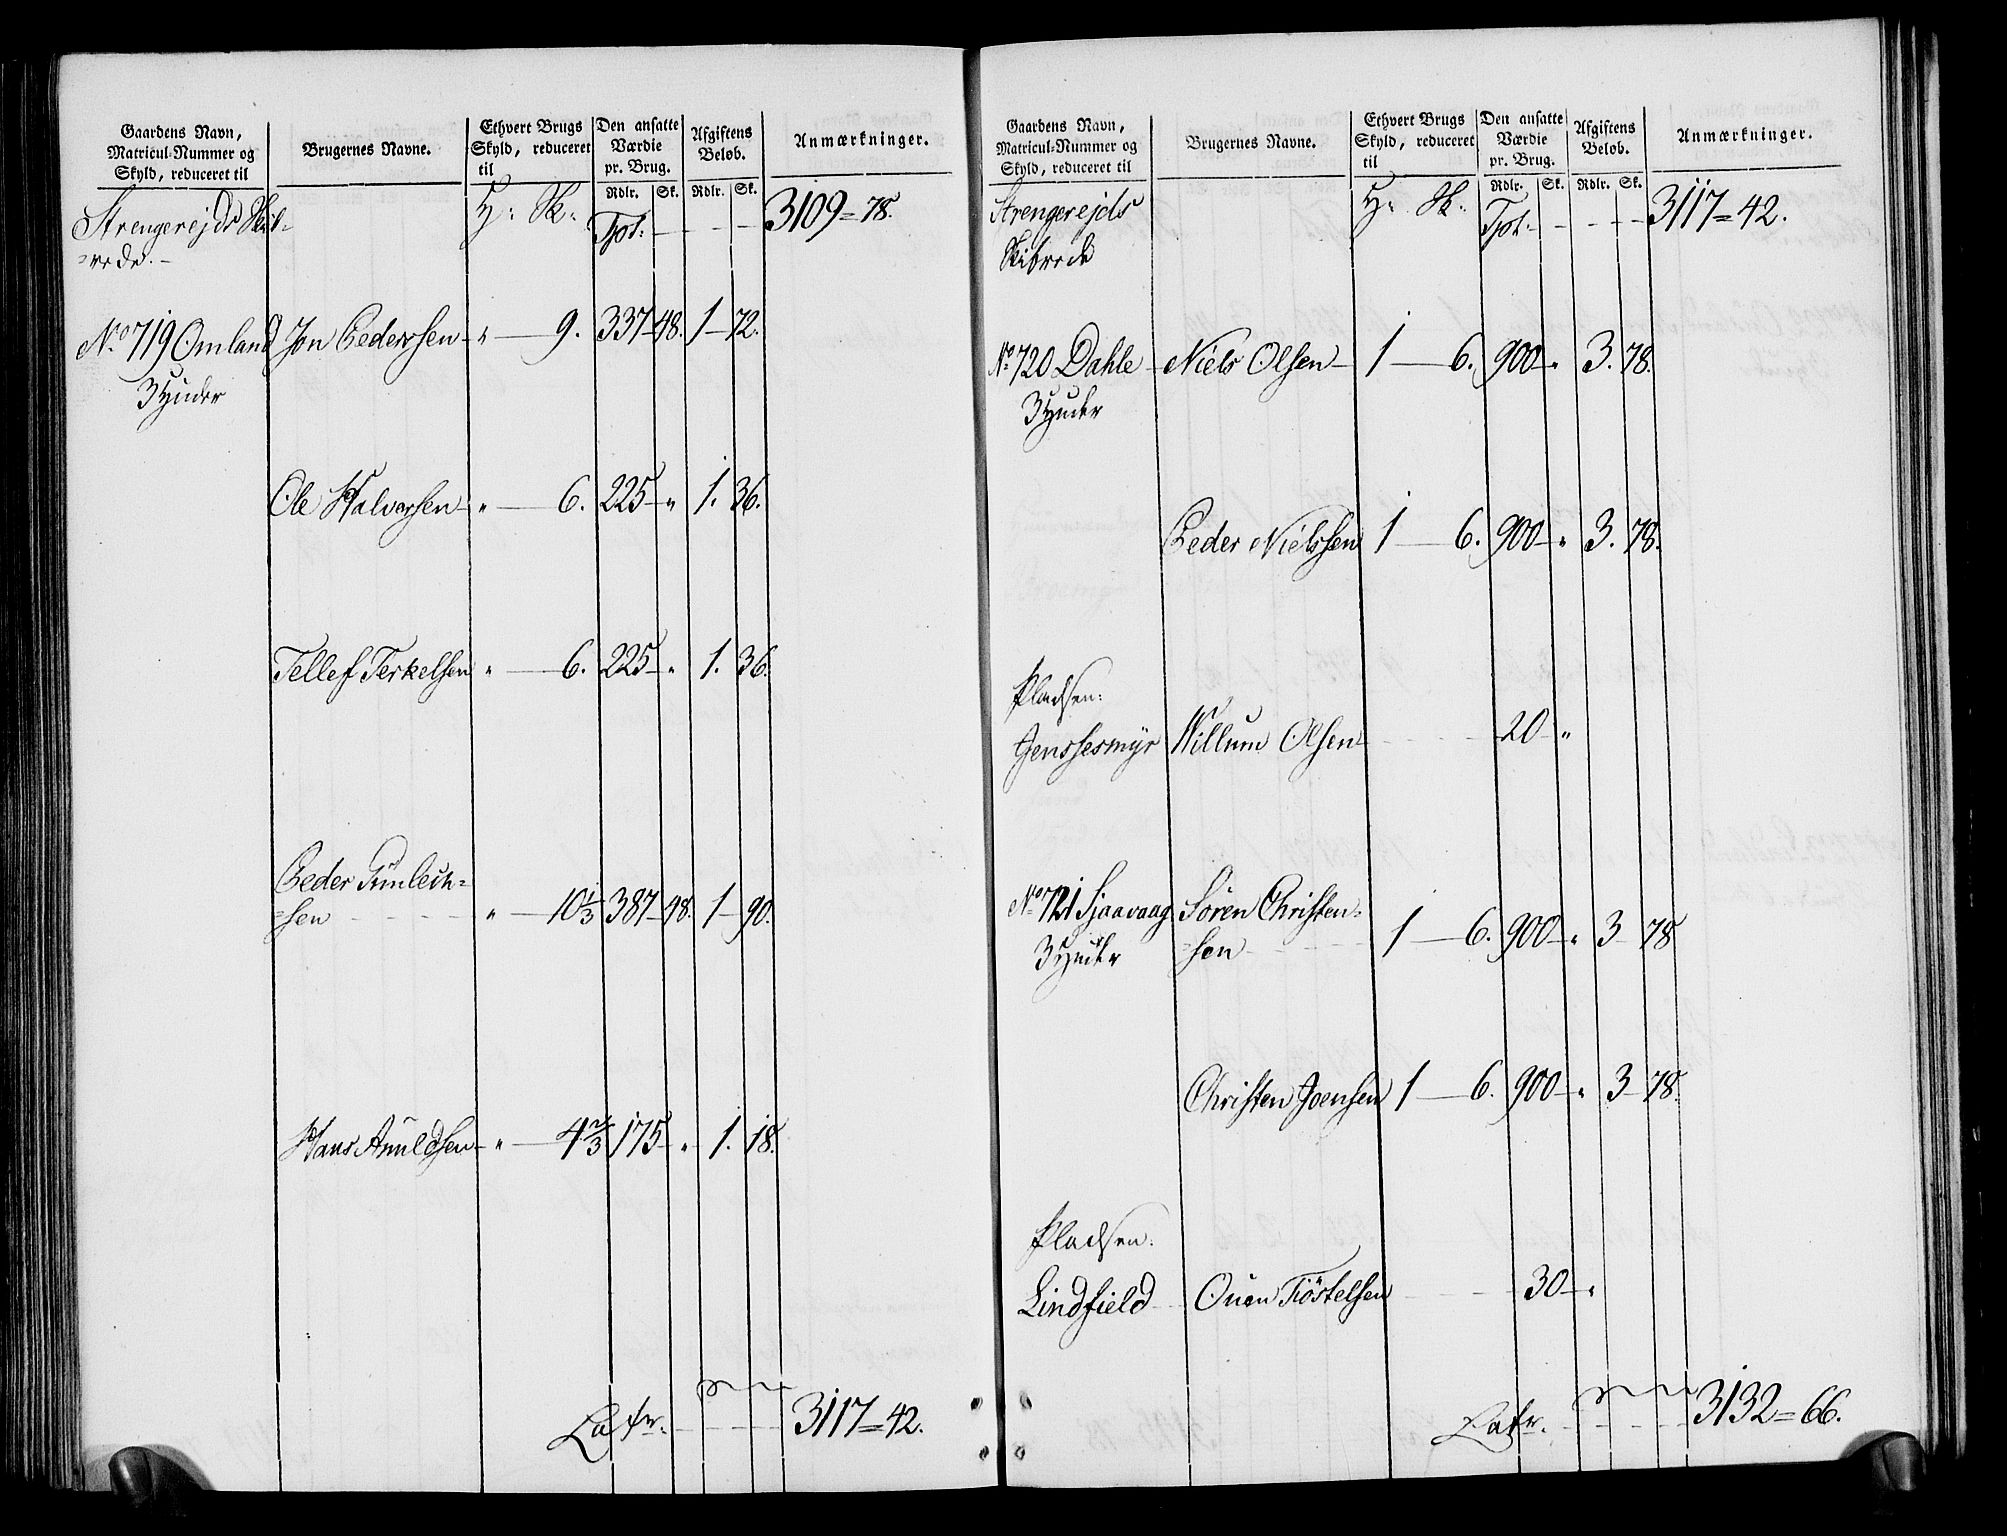 Gaardens Navn,
Matricul-Nummer og
Skyld, reduceret til
Brugernes Navne.
Ethvert Brugs
Skyld, reduceret
til
Den ansatte
Værdie
pr. Brug.
Rdlr. Sk.
Afgiftens
Beløb.
Rdlr. Sk.
Anmærkninger.
Strengerejds Skib-
rede.
H: Sk: Tpt: 3109 = 78.
No 719 Omland Jon Pedersen " 9. 337 48. 1 72.
3 Huder
Ole Halvorsen " 6. 225 " 1. 36.
Tellef Terkelsen " 6. 225 " 1. 36.
Peder Gunlech=
=sen " 10 1/3 387 48. 1 90.
Hans Anuldsen " 4 2/3 175 " 1. 18.
Latr. 3117 = 42.
Gaardens Navn,
Matricul-Nummer og
Skyld, reduceret til
Brugernes Navne.
Ethvert Brugs
Skyld, reduceret
til
Den ansatte
Værdie
pr. Brug.
Rdlr. Sk.
Afgiftens
Beløb.
Rdlr. Sk.
Anmærkninger.
Strengerejds
Skibrede
H: Sk: Tpt: 3117 = 42.
No 720 Dahle Niels Olsen 1 6. 900 " 3. 78.
3 Huder
Peder Nielssen 1 6. 900 " 3. 78.
Pladsen:
Jenssesmyr Willum Olsen 20 "
No 721 Sjaavaag Søren Christen=
3 Huder =sen 1 6. 900 " 3 78
Christen Joensen 1 6. 900 " 3 78.
Pladsen:
Lindfield Ouen Tiöstelsen 30 "
Latr. 3132 = 66.